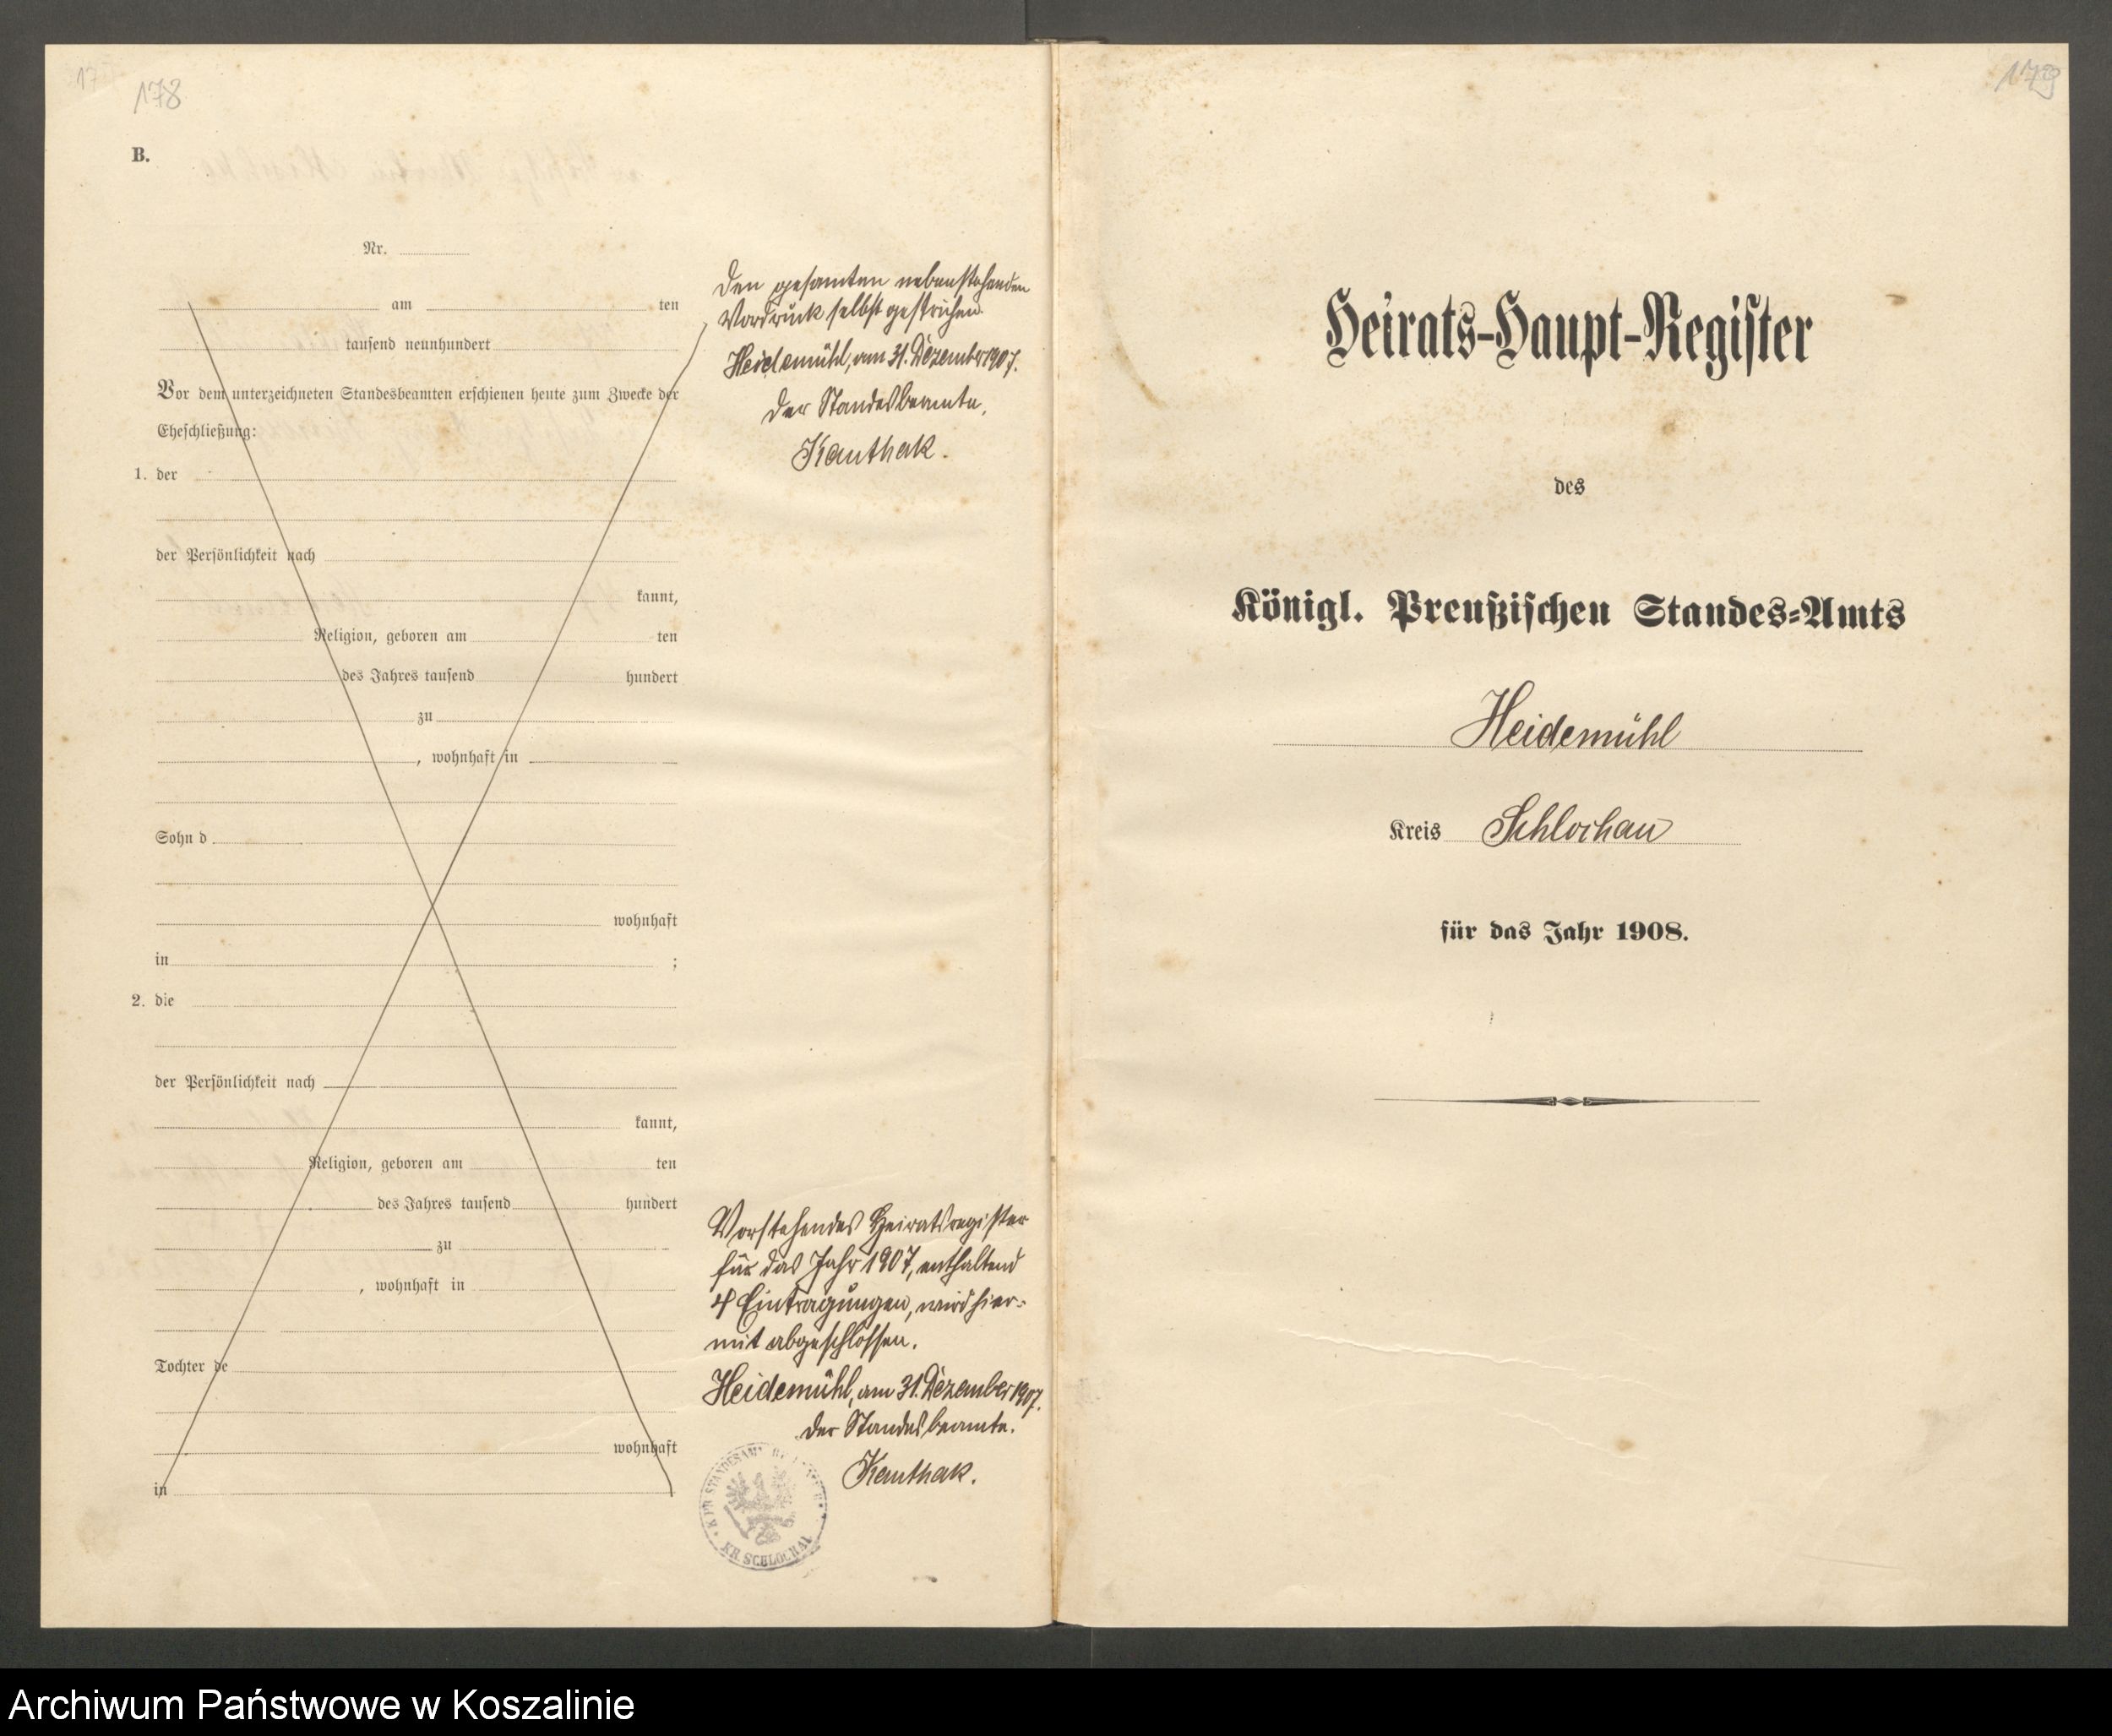 178
B.
Nr.
am ten
tausend neunhundert
Vor dem unterzeichneten Standesbeamten erschienen heute zum Zwecke der
Eheschließung:
1. der
der Persönlichkeit nach
kannt,
Religion, geboren am ten
des Jahres tausend hundert
zu
, wohnhaft in
Sohn d
wohnhaft
in ;
2. die
der Persönlichkeit nach
kannt,
Religion, geboren am ten
des Jahres tausend hundert
zu
, wohnhaft in
Tochter de
wohnhaft
in
Den gesamten nebenstehenden
Vordruck selbst gestrichen.
Heidemühl, am 31. Dezember 1907.
Der Standesbeamte,
Kauthak.
Vorstehendes Heiratsregister
für das Jahr 1907, enthaltend
4 Eintragungen, wird hier-
mit abgeschlossen.
Heidemühl, am 31. Dezember 1907.
Der Standesbeamte.
Kauthak.
STANDESAMT
KR. SCHLOCHAU
179
Heirats-Haupt-Register
des
Königl. Preußischen Standes-Amts
Heidemühl
Kreis Schlochau
für das Jahr 1908.
Archiwum Państwowe w Koszalinie